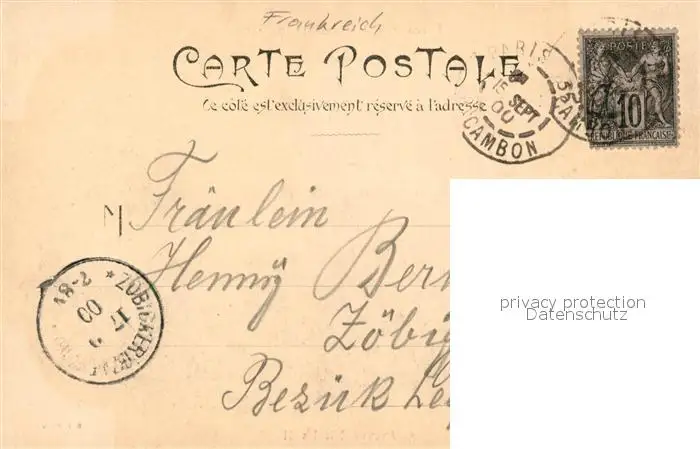 Frankreich
CARTE POSTALE
Ce côté est exclusivement réservé à l'adresse
PARIS
15 SEPT
00
CAMBON
POSTE
10
REPUBLIQUE FRANÇAISE
M
Fräulein
Henny Ber
Zöbig
Bezirk Le
ZÖBIGKER
17 9
00
8-9V
privacy protection
Datenschutz